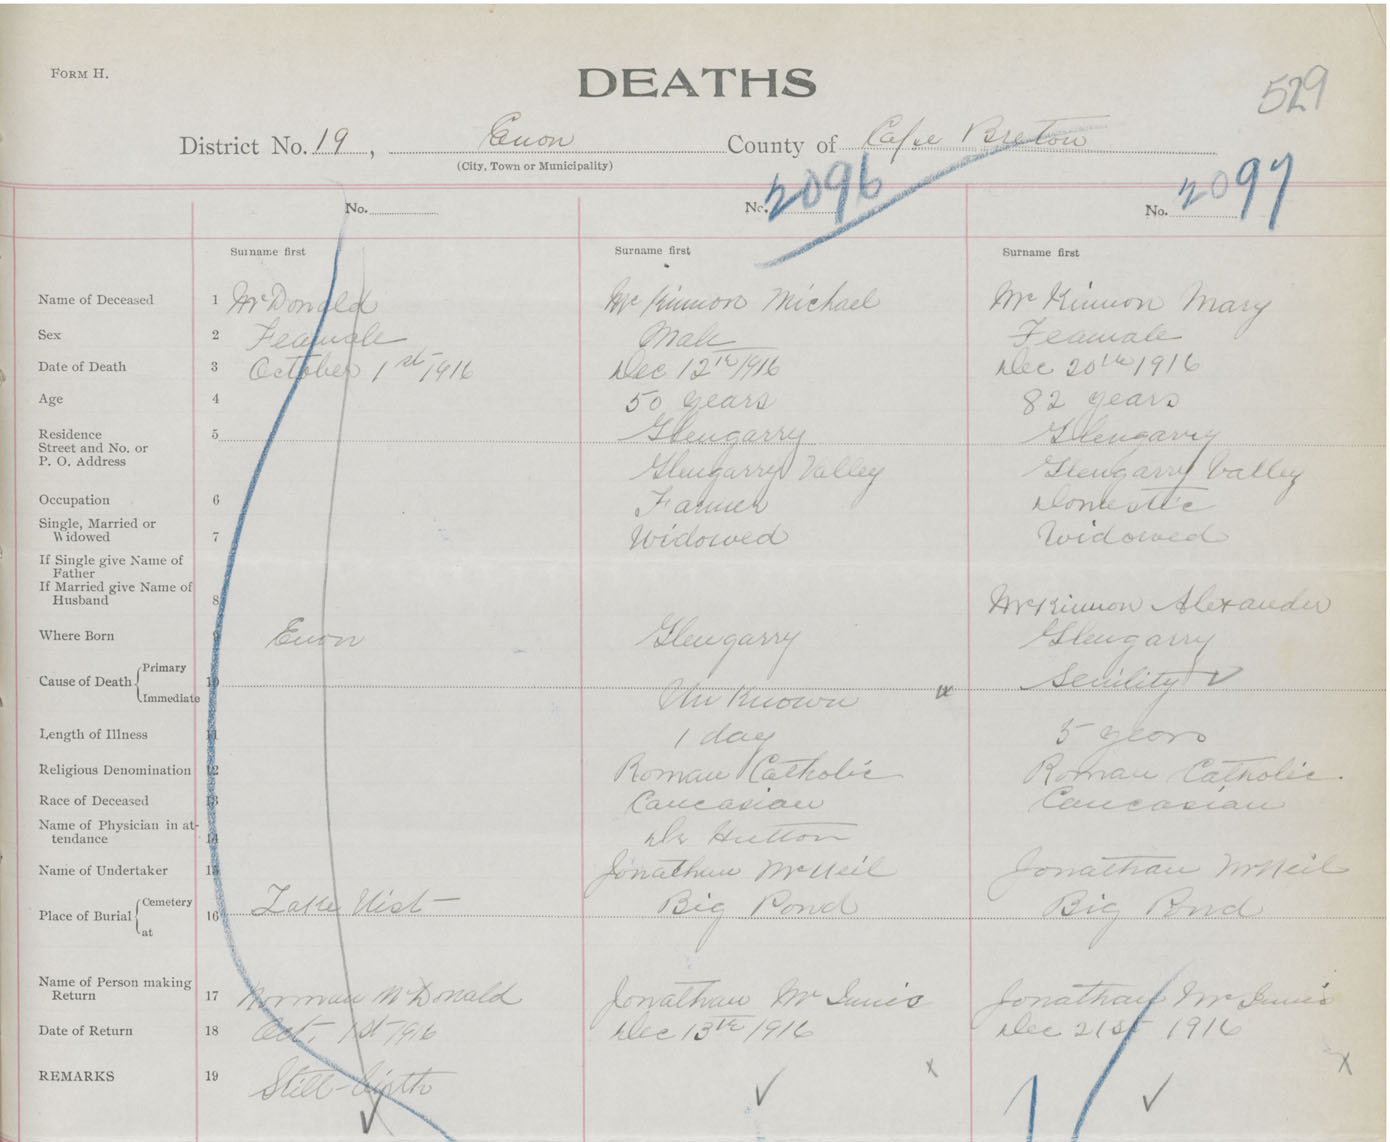 FORM H.
DEATHS
529
District No. 19, Enon County of Cape Breton
(City, Town or Municipality)
No. No. 2096 No. 2097
Surname first Surname first Surname first
Name of Deceased 1 McDonald McKinnon Michael McKinnon Mary
Sex 2 Feamale Male Feamale
Date of Death 3 October 1st 1916 Dec 12th 1916 Dec 20th 1916
Age 4 50 years 82 years
Residence 5 Glengarry Glengarry
Street and No. or
P. O. Address Glengarry Valley Glengarry Valley
Occupation 6 Farmer Domestic
Single, Married or
Widowed 7 Widowed Widowed
If Single give Name of
Father
If Married give Name of
Husband 8 McKinnon Alexander
Where Born 9 Enon Glengarry Glengarry
Primary
Cause of Death 10 Senility ✓
Immediate Un Known
Length of Illness 11 1 day 5 years
Religious Denomination 12 Roman Catholic Roman Catholic.
Race of Deceased 13 Caucasian Caucasian
Name of Physician in at-
tendance 14 Dr Hutton
Name of Undertaker 15 Jonathan McNeil Jonathan McNeil
Cemetery
Place of Burial 16 Lake Uist Big Pond Big Pond
at
Name of Person making
Return 17 Norman McDonald Jonathan McInnis Jonathan McInnis
Date of Return 18 Oct. 1st 1916 Dec 13th 1916 Dec 21st 1916
REMARKS 19 Still-birth x x
✓ ✓ ✓